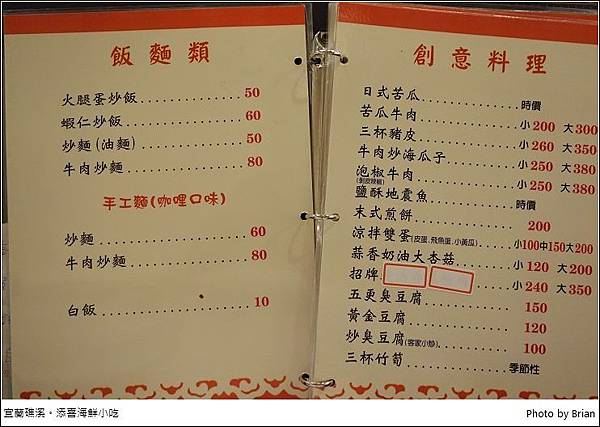 飯麵類
火腿蛋炒飯 50
蝦仁炒飯 60
炒麵(油麵) 50
牛肉炒麵 80
手工麵(咖哩口味)
炒麵 60
牛肉炒麵 80
白飯 10
創意料理
日式苦瓜 時價
苦瓜牛肉 小200 大300
三杯豬皮 小260 大350
牛肉炒海瓜子 小250 大380
泡椒牛肉 小250 大380
(剝皮辣椒)
鹽酥地震魚 時價
末式煎餅 200
涼拌雙蛋(皮蛋、飛魚蛋、小黃瓜) 小100中150大200
蒜香奶油大杏菇 小120 大200
招牌 小240 大350
五更臭豆腐 150
黃金豆腐 120
炒臭豆腐(客家小炒) 100
三杯竹筍 季節性
宜蘭礁溪。添喜海鮮小吃
Photo by Brian